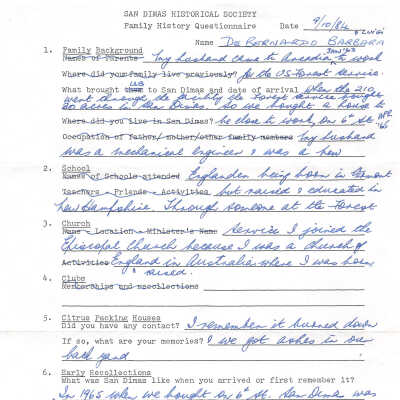 SAN DIMAS HISTORICAL SOCIETY
Family History Questionnaire Date 9/10/84
Name DeBernardo Barbara
1. Family Background
Name of Parents - My husband came to Arcadia to work
Where did your family live previously? for the US Forest Service.
What brought them us to San Dimas and date of arrival when the 210
went through the Forest Service
20 acres in San Dimas. So we bought a house to
Where did you live in San Dimas? be close to work, on 6th St.
Occupation of father/mother/other family members My husband
was a mechanical engineer & was a New
2. School
Names of Schools attended Englander being born in Vermont
Teachers - Friends - Activities but raised & educated in
New Hampshire. Through someone at the Forest
3. Church
Name - Location - Minister's Name Service I joined the
Episcopal Church because I was a church of
Activities England in Australia where I was born
& raised.
4. Clubs
Memberships and recollections
5. Citrus Packing Houses
Did you have any contact? I remember it burned down
If so, what are your memories? & we got ashes in our
back yard
6. Early Recollections
What was San Dimas like when you arrived or first remember it?
In 1965 when we bought on 6th St. San Dimas was